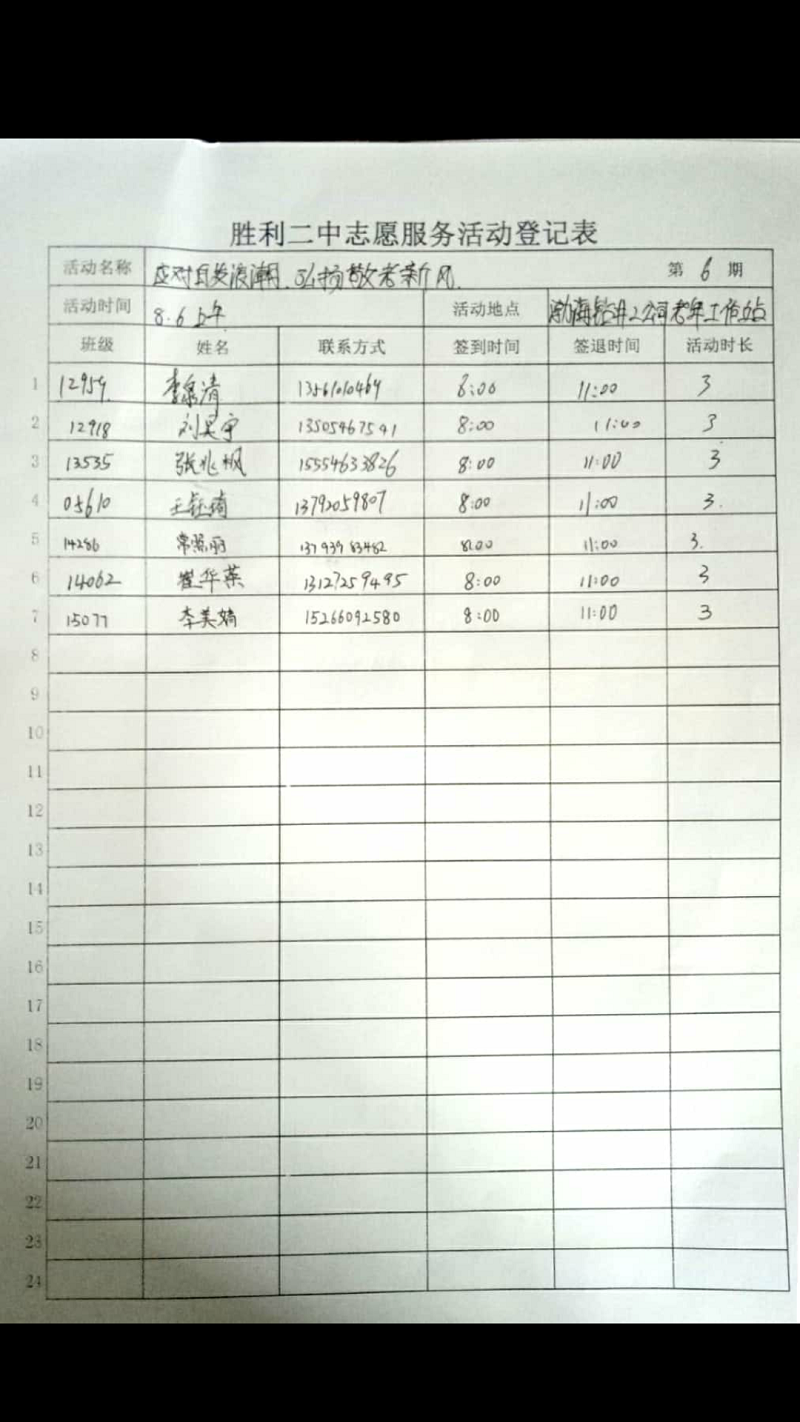 胜利二中志愿服务活动登记表
活动名称 应对 浪潮、弘扬敬老新风. 第 6 期
活动时间 8.6上午 活动地点 渤海钻井2公司老年工作站
班级 姓名 联系方式 签到时间 签退时间 活动时长
1 12959 李泉清 13561010469 8:00 11:00 3
2 12918 刘昊宇 13505467541 8:00 11:00 3
3 13535 张兆枫 15554633826 8:00 11:00 3
4 05610 王钰琦 13792059807 8:00 11:00 3.
5 14286 常 丽 13793983482 8:00 11:00 3.
6 14062 崔华荣 13127259495 8:00 11:00 3
7 15077 李美嫡 15266092580 8:00 11:00 3
8
9
10
11
12
13
14
15
16
17
18
19
20
21
22
23
24